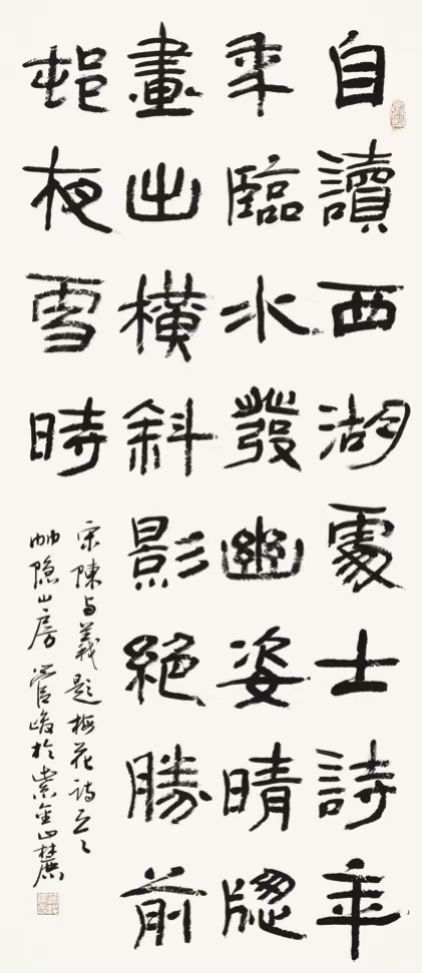 自讀西湖處士詩年
年臨水發幽姿晴牕
畫出橫斜影絕勝前
邨夜雪時
宋陳与義題梅花诗
隐山房管峻於紫金山麓